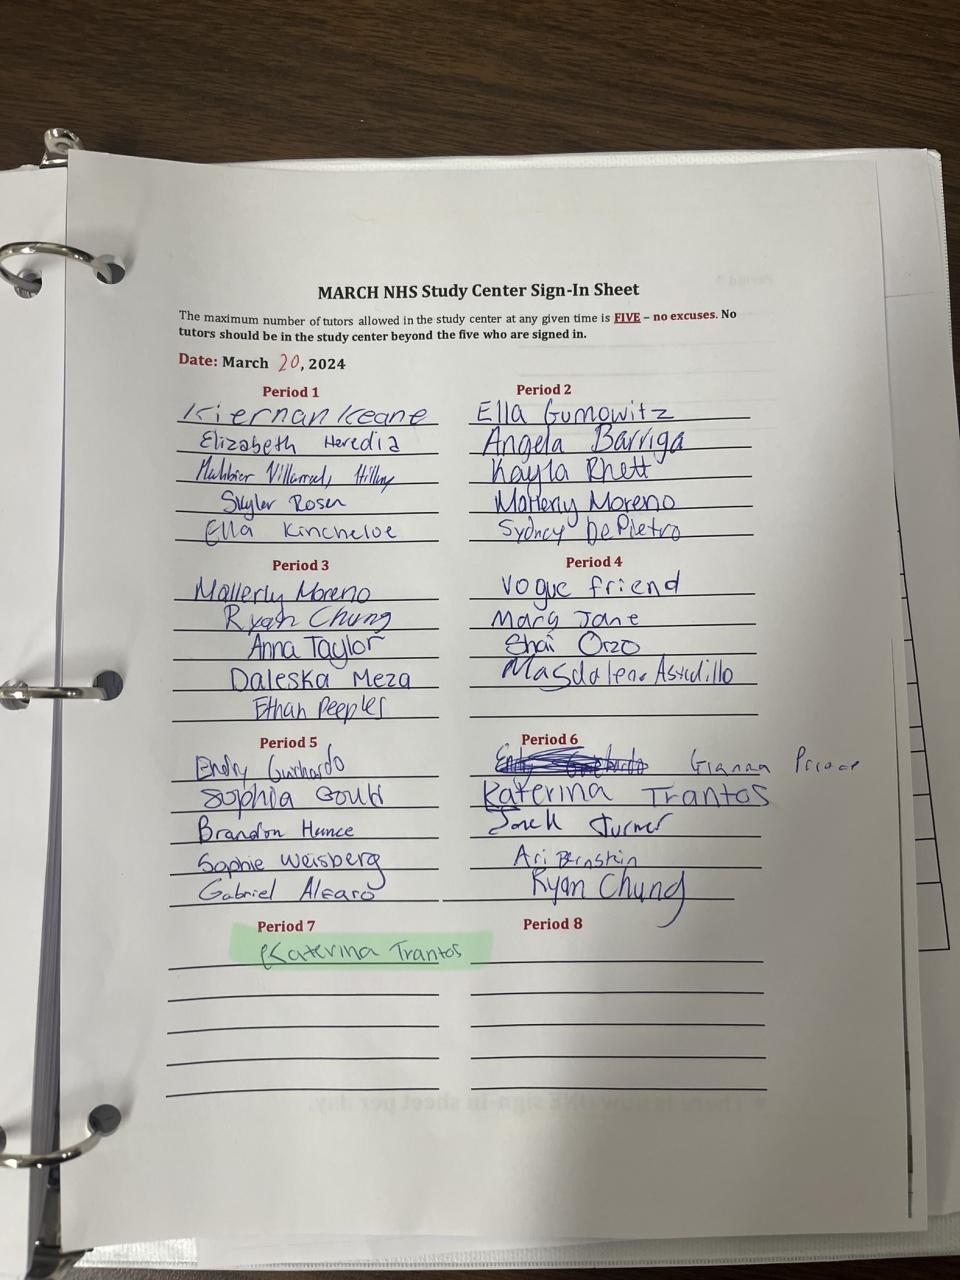 MARCH NHS Study Center Sign-In Sheet
The maximum number of tutors allowed in the study center at any given time is FIVE – no excuses. No
tutors should be in the study center beyond the five who are signed in.
Date: March 20, 2024
Period 1
Kiernan Keane
Elizabeth Heredia
Skyler Rosen
Ella Kincheloe
Period 2
Ella Gumowitz
Angela Barriga
Kayla Rhett
Mallerly Moreno
Sydney DePietro
Period 3
Mallerly Moreno
Ryan Chung
Anna Taylor
Daleska Meza
Ethan Peeples
Period 4
Vogue friend
Mary Jane
Shai Orzo
Magdalena Astudillo
Period 5
Endry Guichardo
Sophia Gould
Brandon Hance
Sophie Weisberg
Gabriel Alfaro
Period 6
Gianna
Katerina Trantos
Turner
Ari Bernstein
Ryan Chung
Period 7
Katerina Trantos
Period 8